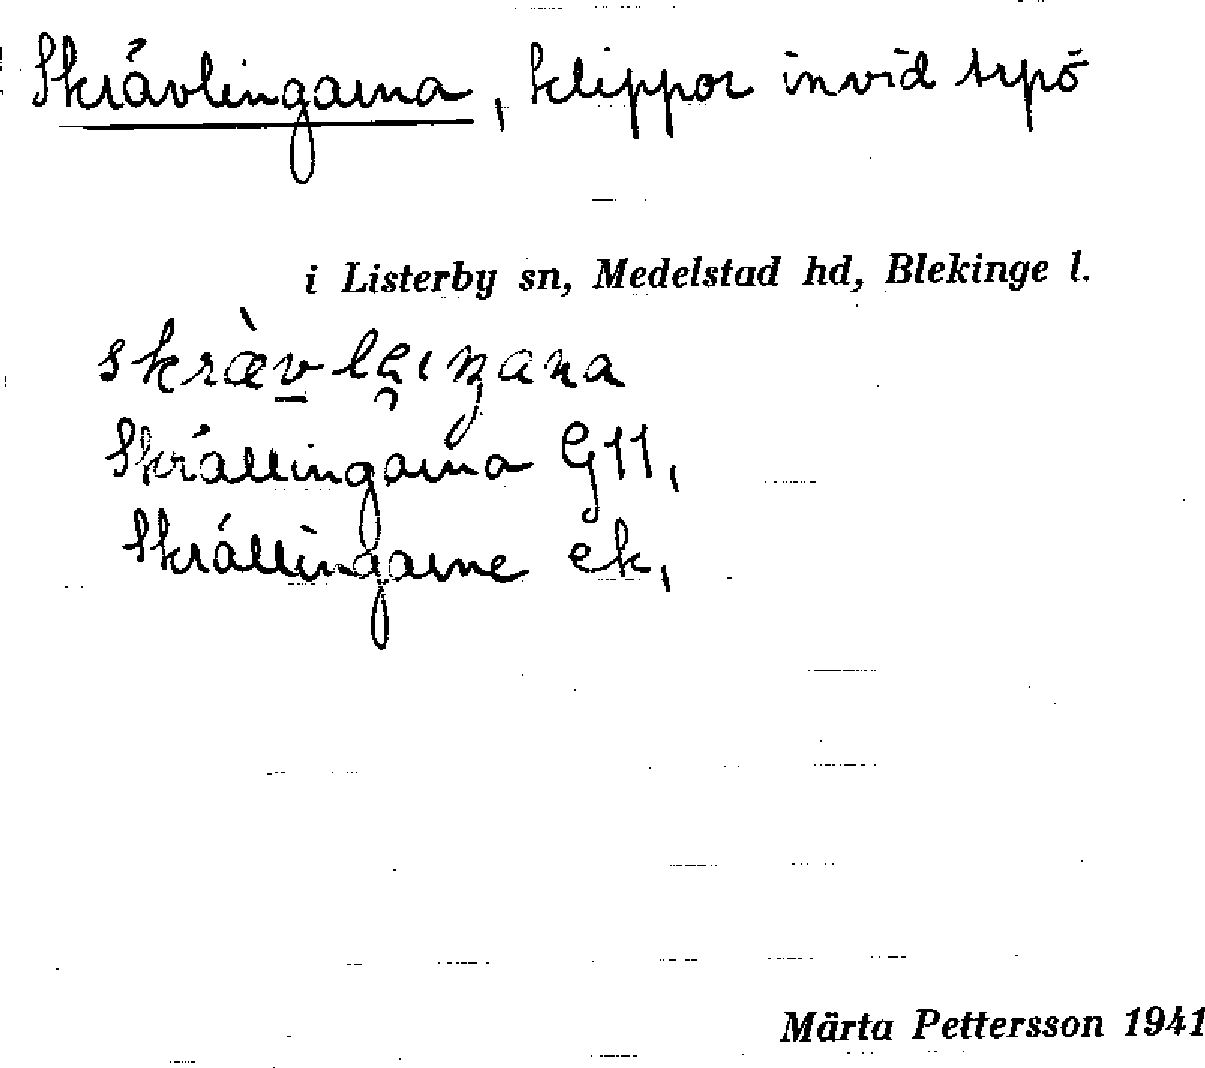 Skrävlingarna, klippor invid Arpö
i Listerby sn, Medelstad hd, Blekinge l.
skræ̀vle̯ıŋana
Skrällingarna G11,
Skrällingarne ek,
Märta Pettersson 1941